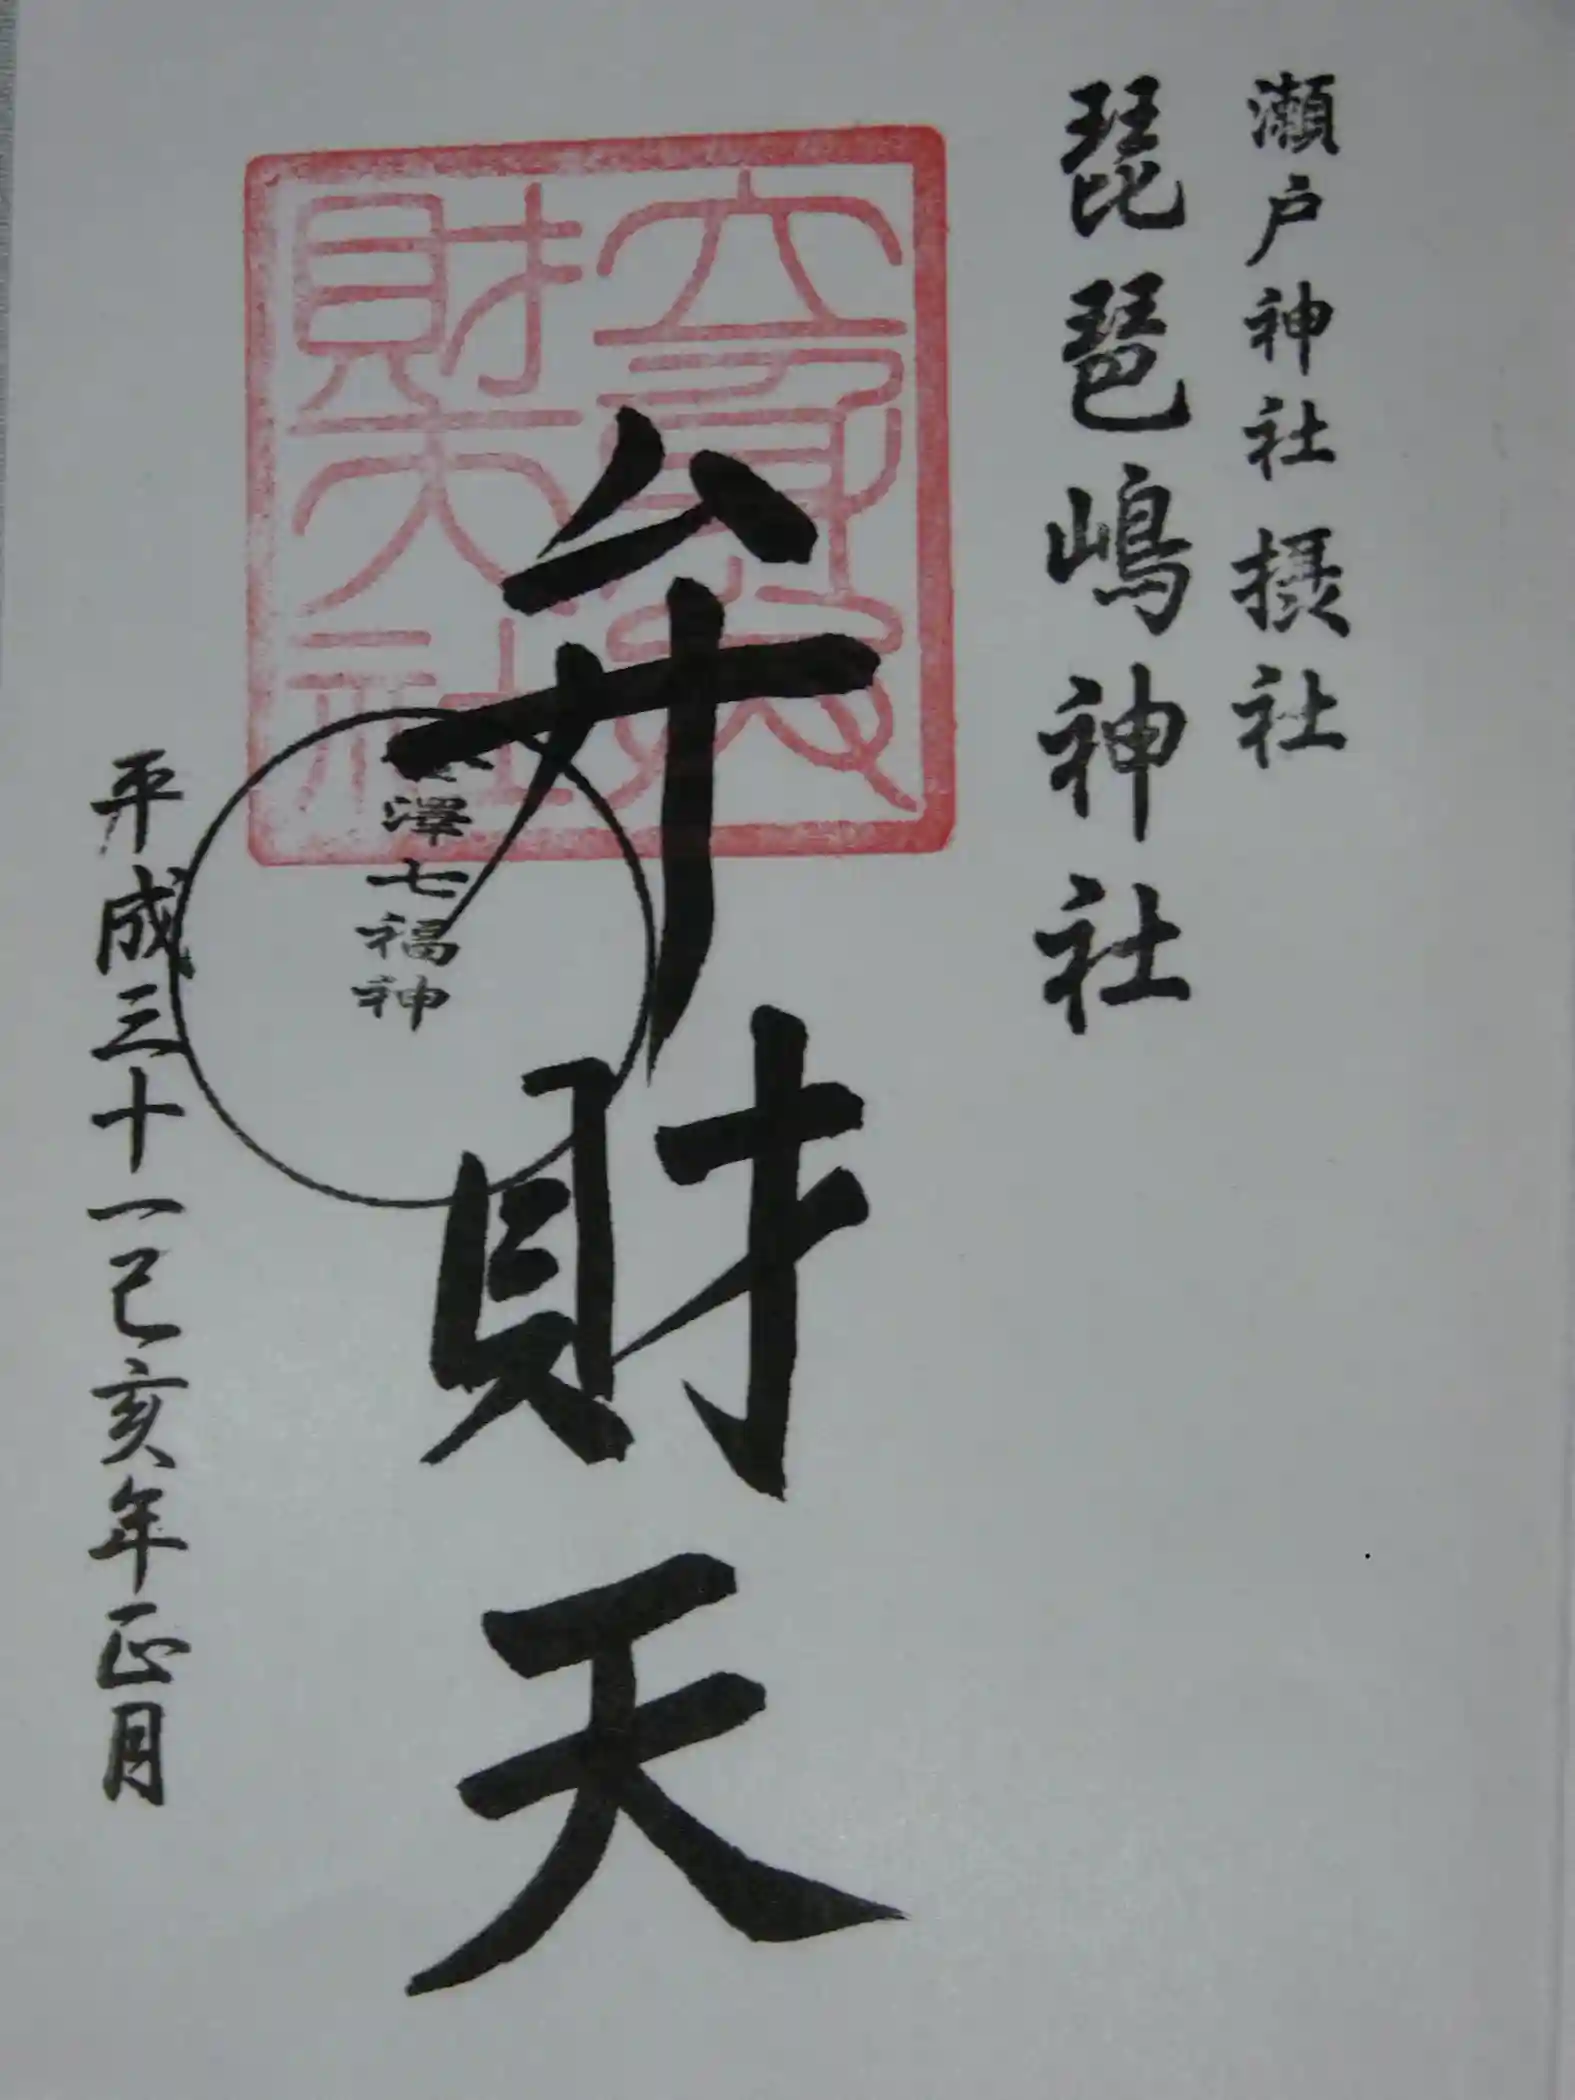 瀬戸神社摂社
琵琶嶋神社
弁財天
澤七福神
平成三十一己亥年正月
財天社